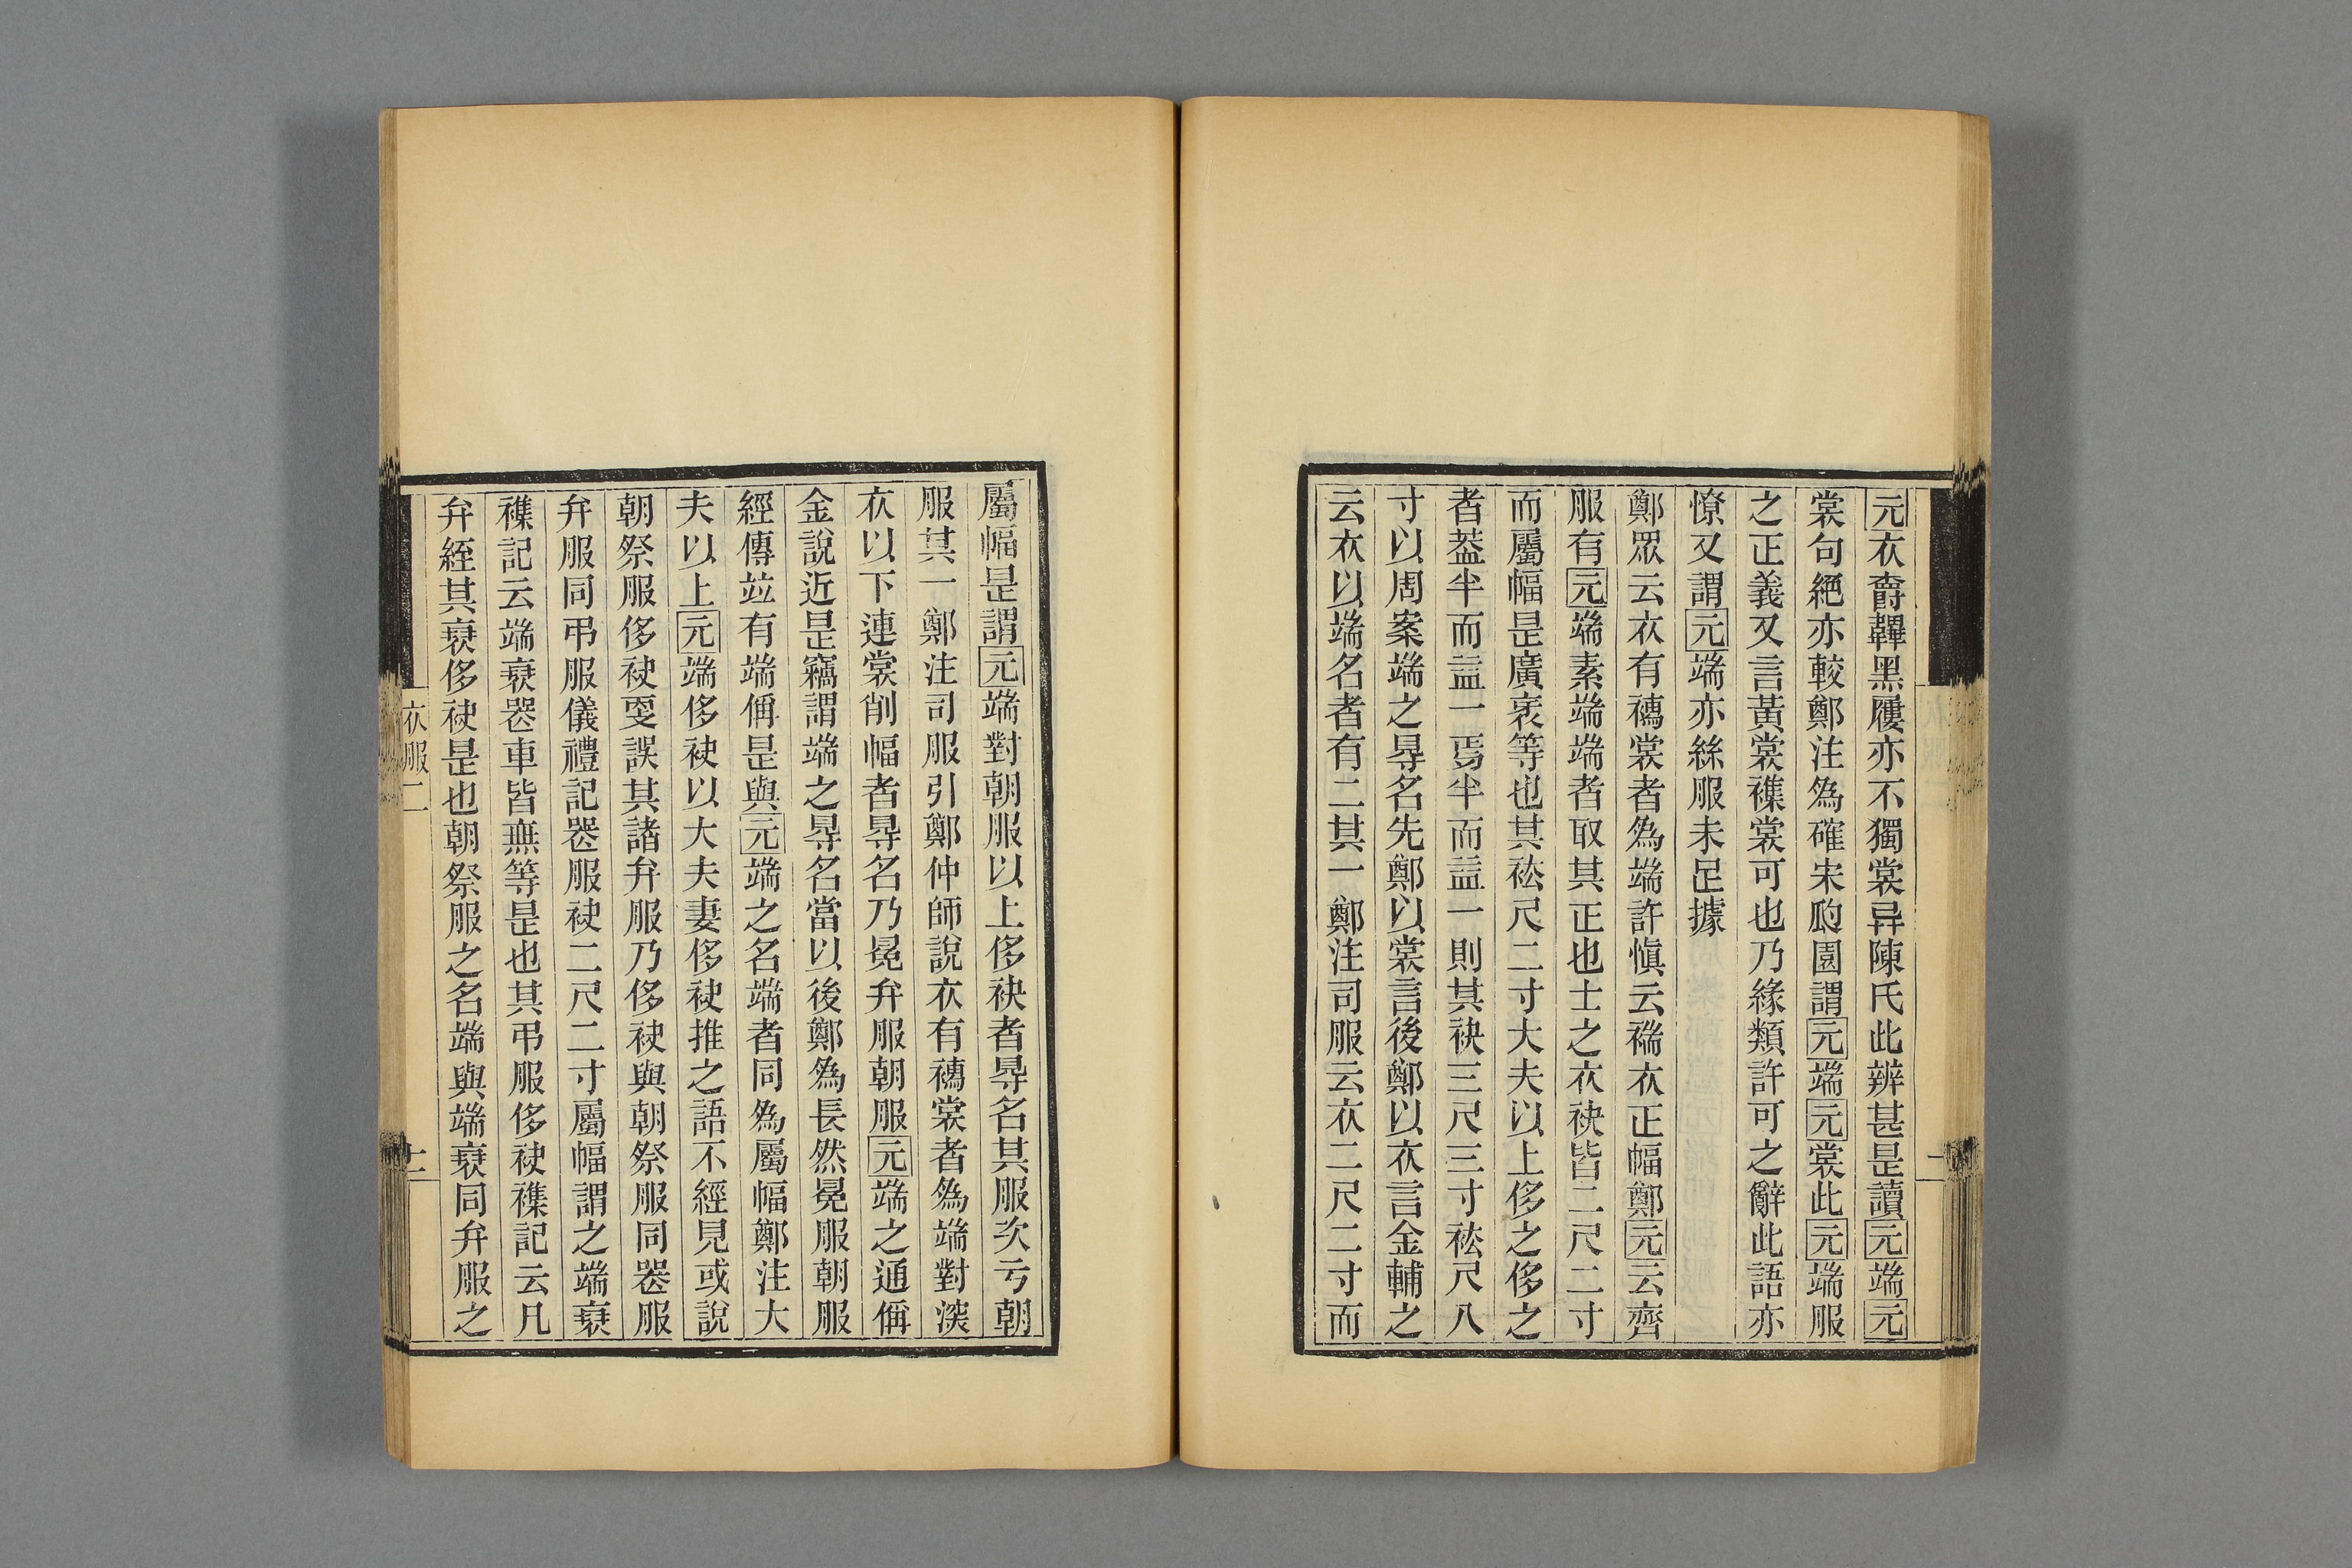 元衣齊韠黑屨亦不獨裳异陳氏此辨甚是讀元端元
裳句絕亦較鄭注爲確宋瓞園謂元端元裳此元端服
之正義又言黃裳襍裳可也乃緣類許可之辭此語亦
憭又謂元端亦絲服未足據
鄭眾云衣有襦裳者爲端許愼云褍衣正幅鄭元云齊
服有元端素端端者取其正也士之衣袂皆二尺二寸
而屬幅是廣袤等也其袪尺二寸大夫以上侈之侈之
者葢半而益一焉半而益一則其袂三尺三寸袪尺八
寸以周案端之㝵名先鄭以裳言後鄭以衣言金輔之
云衣以端名者有二其一鄭注司服云衣二尺二寸而
屬幅是謂元端對朝服以上侈袂者㝵名其服次亏朝
服其一鄭注司服引鄭仲師說衣有襦裳者爲端對深
衣以下連裳削幅者㝵名乃冕弁服朝服元端之通偁
金說近是竊謂端之㝵名當以後鄭爲長然冕服朝服
經傳竝有端偁是與元端之名端者同爲屬幅鄭注大
夫以上元端侈袂以大夫妻侈袂推之語不經見或說
朝祭服侈袂更誤其諸弁服乃侈袂與朝祭服同喪服
弁服同弔服儀禮記喪服袂二尺二寸屬幅謂之端衰
襍記云端衰喪車皆無等是也其弔服侈袂襍記云凡
弁絰其衰侈袂是也朝祭服之名端與端衰同弁服之
衣服二
二